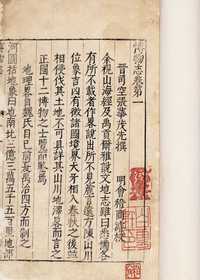 博物志卷第一
晉司空張華茂先撰
明會稽商濬校
余視山海經及禹貢爾雅說文地志雖曰悉備各
有所不載者作畧說出所不見粗言遠方陳山川
位象吉凶有徵諸國境界犬牙相入春秋之後並
相侵伐其土地不可具詳其山川地澤畧而言之
正國十二博物之士覽而鑒焉
地理畧自魏氏目已前夏禹治四方而制之
河圖括地象曰地南北三億三萬五千五百里地